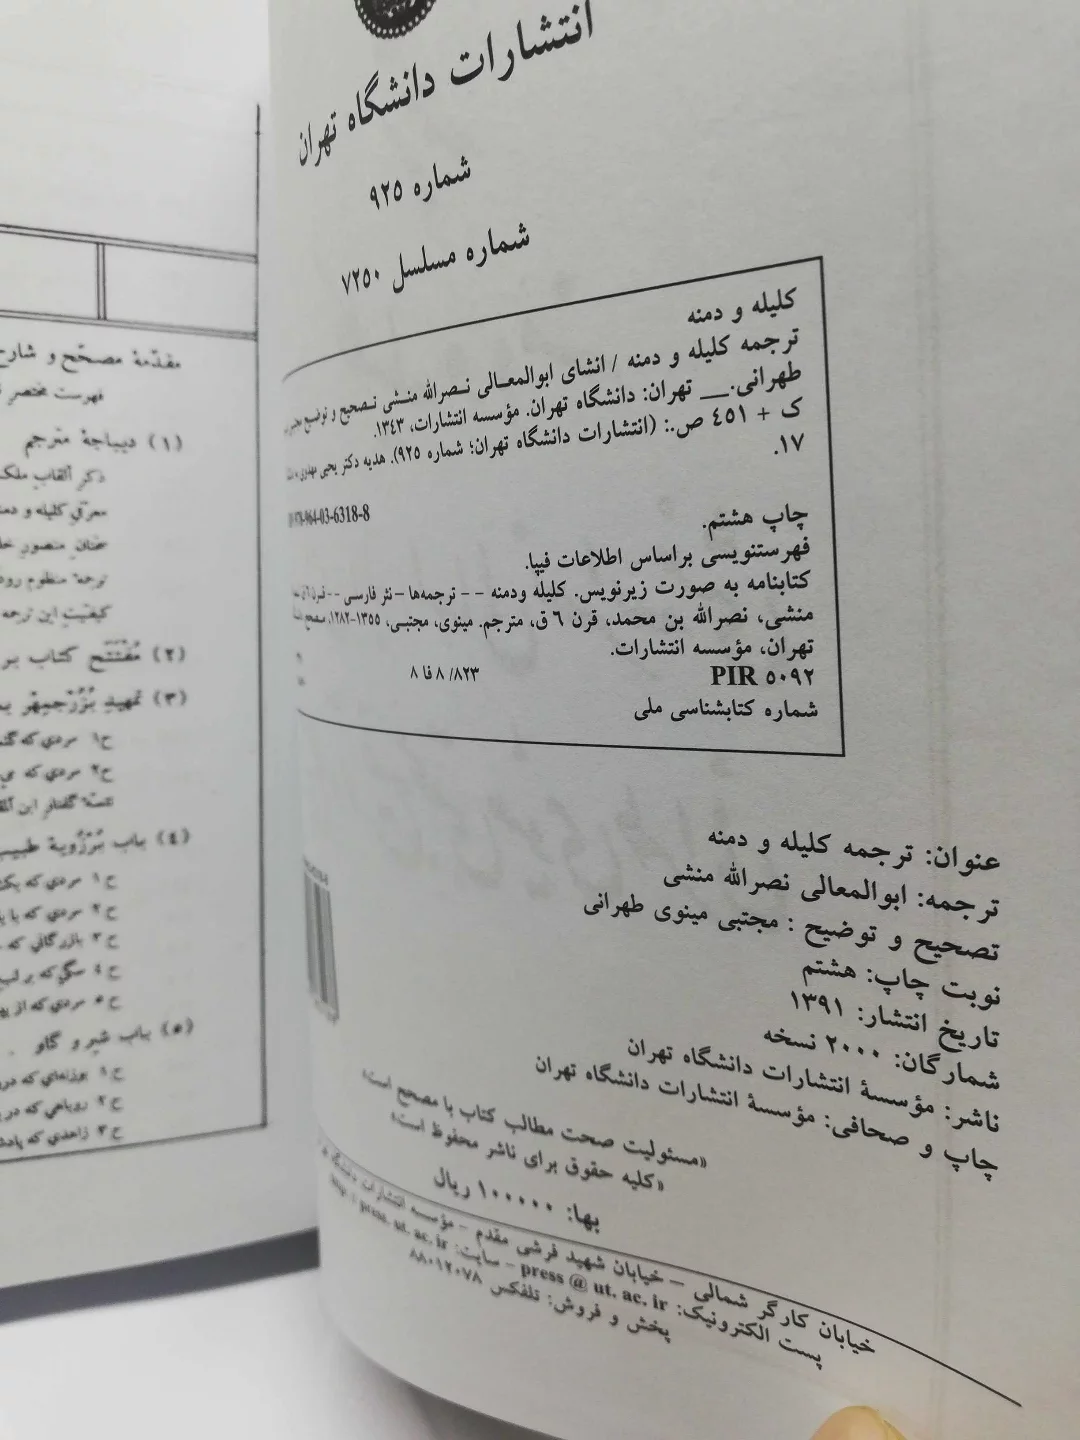 انتشارات دانشگاه تهران
شماره ۹۲۵
شماره مسلسل ۷۲۵۰
کلیله و دمنه
ترجمه کلیله و دمنه / انشای ابوالمعالی نصرالله منشی تصحیح و توضیح
طهرانی.__ تهران: دانشگاه تهران. مؤسسه انتشارات، ۱۳۴۳.
ک + ۴۵۱ ص.: (انتشارات دانشگاه تهران؛ شماره ۹۲۵). هدیه دکتر یحیی مهدوی
۱۷.
978-964-03-6318-8
چاپ هشتم.
فهرستنویسی براساس اطلاعات فیپا.
کتابنامه به صورت زیرنویس. کلیله ودمنه -- ترجمه‌ها - نثر فارسی --
منشی، نصرالله بن محمد، قرن ۶ ق، مترجم. مینوی، مجتبی، ۱۳۵۵-۱۲۸۲،
تهران، مؤسسه انتشارات.
PIR ۵۰۹۲
۸ فا ۸ /۸۲۳
شماره کتابشناسی ملی
عنوان: ترجمه کلیله و دمنه
ترجمه: ابوالمعالی نصرالله منشی
تصحیح و توضیح : مجتبی مینوی طهرانی
نوبت چاپ: هشتم
تاریخ انتشار: ۱۳۹۱
شمارگان: ۲۰۰۰ نسخه
ناشر: مؤسسهٔ انتشارات دانشگاه تهران
چاپ و صحافی: مؤسسهٔ انتشارات دانشگاه تهران
«مسئولیت صحت مطالب کتاب با مصحح است»
«کلیه حقوق برای ناشر محفوظ است»
بها: ۱۰۰۰۰۰ ریال
خیابان کارگر شمالی - خیابان شهید فرشی مقدم - مؤسسه انتشارات دانشگاه
پست الکترونیک: press @ ut. ac. ir - سایت: http:// press. ut. ac. ir
پخش و فروش: تلفکس ۸۸۰۱۲۰۷۸
مقدّمهٔ مصحّح و شارح
فهرست مختصر
(۱) دیباجهٔ مترجم
ذکر القاب ملک
معرّفی کلیله و دمنه
سخنان منصور
ترجمهٔ منظوم
کیفیّت این ترجمه
(۲) مُفْتَتَح کتاب
(۳) تمهید بُزُرْجمِهْر
ح۱ مردی که
ح۲ مردی که می
(۴) باب بُرْزُویهٔ طبیب
ح۱ مردی که
ح۲ مردی که با
ح۳ بازرگانی که
ح۴ سگی که بر لب
ح۵ مردی که از
(۵) باب شیر و گاو
ح۱ بوزنه‌ای که
ح۲ روباهی که در
ح۳ زاهدی که